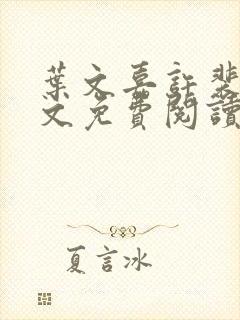 葉文喜許裴
文免費閱讀
夏言冰